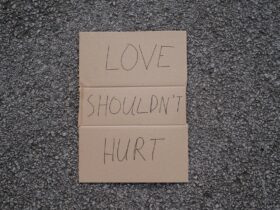 LOVE
SHOULDN'T
HURT